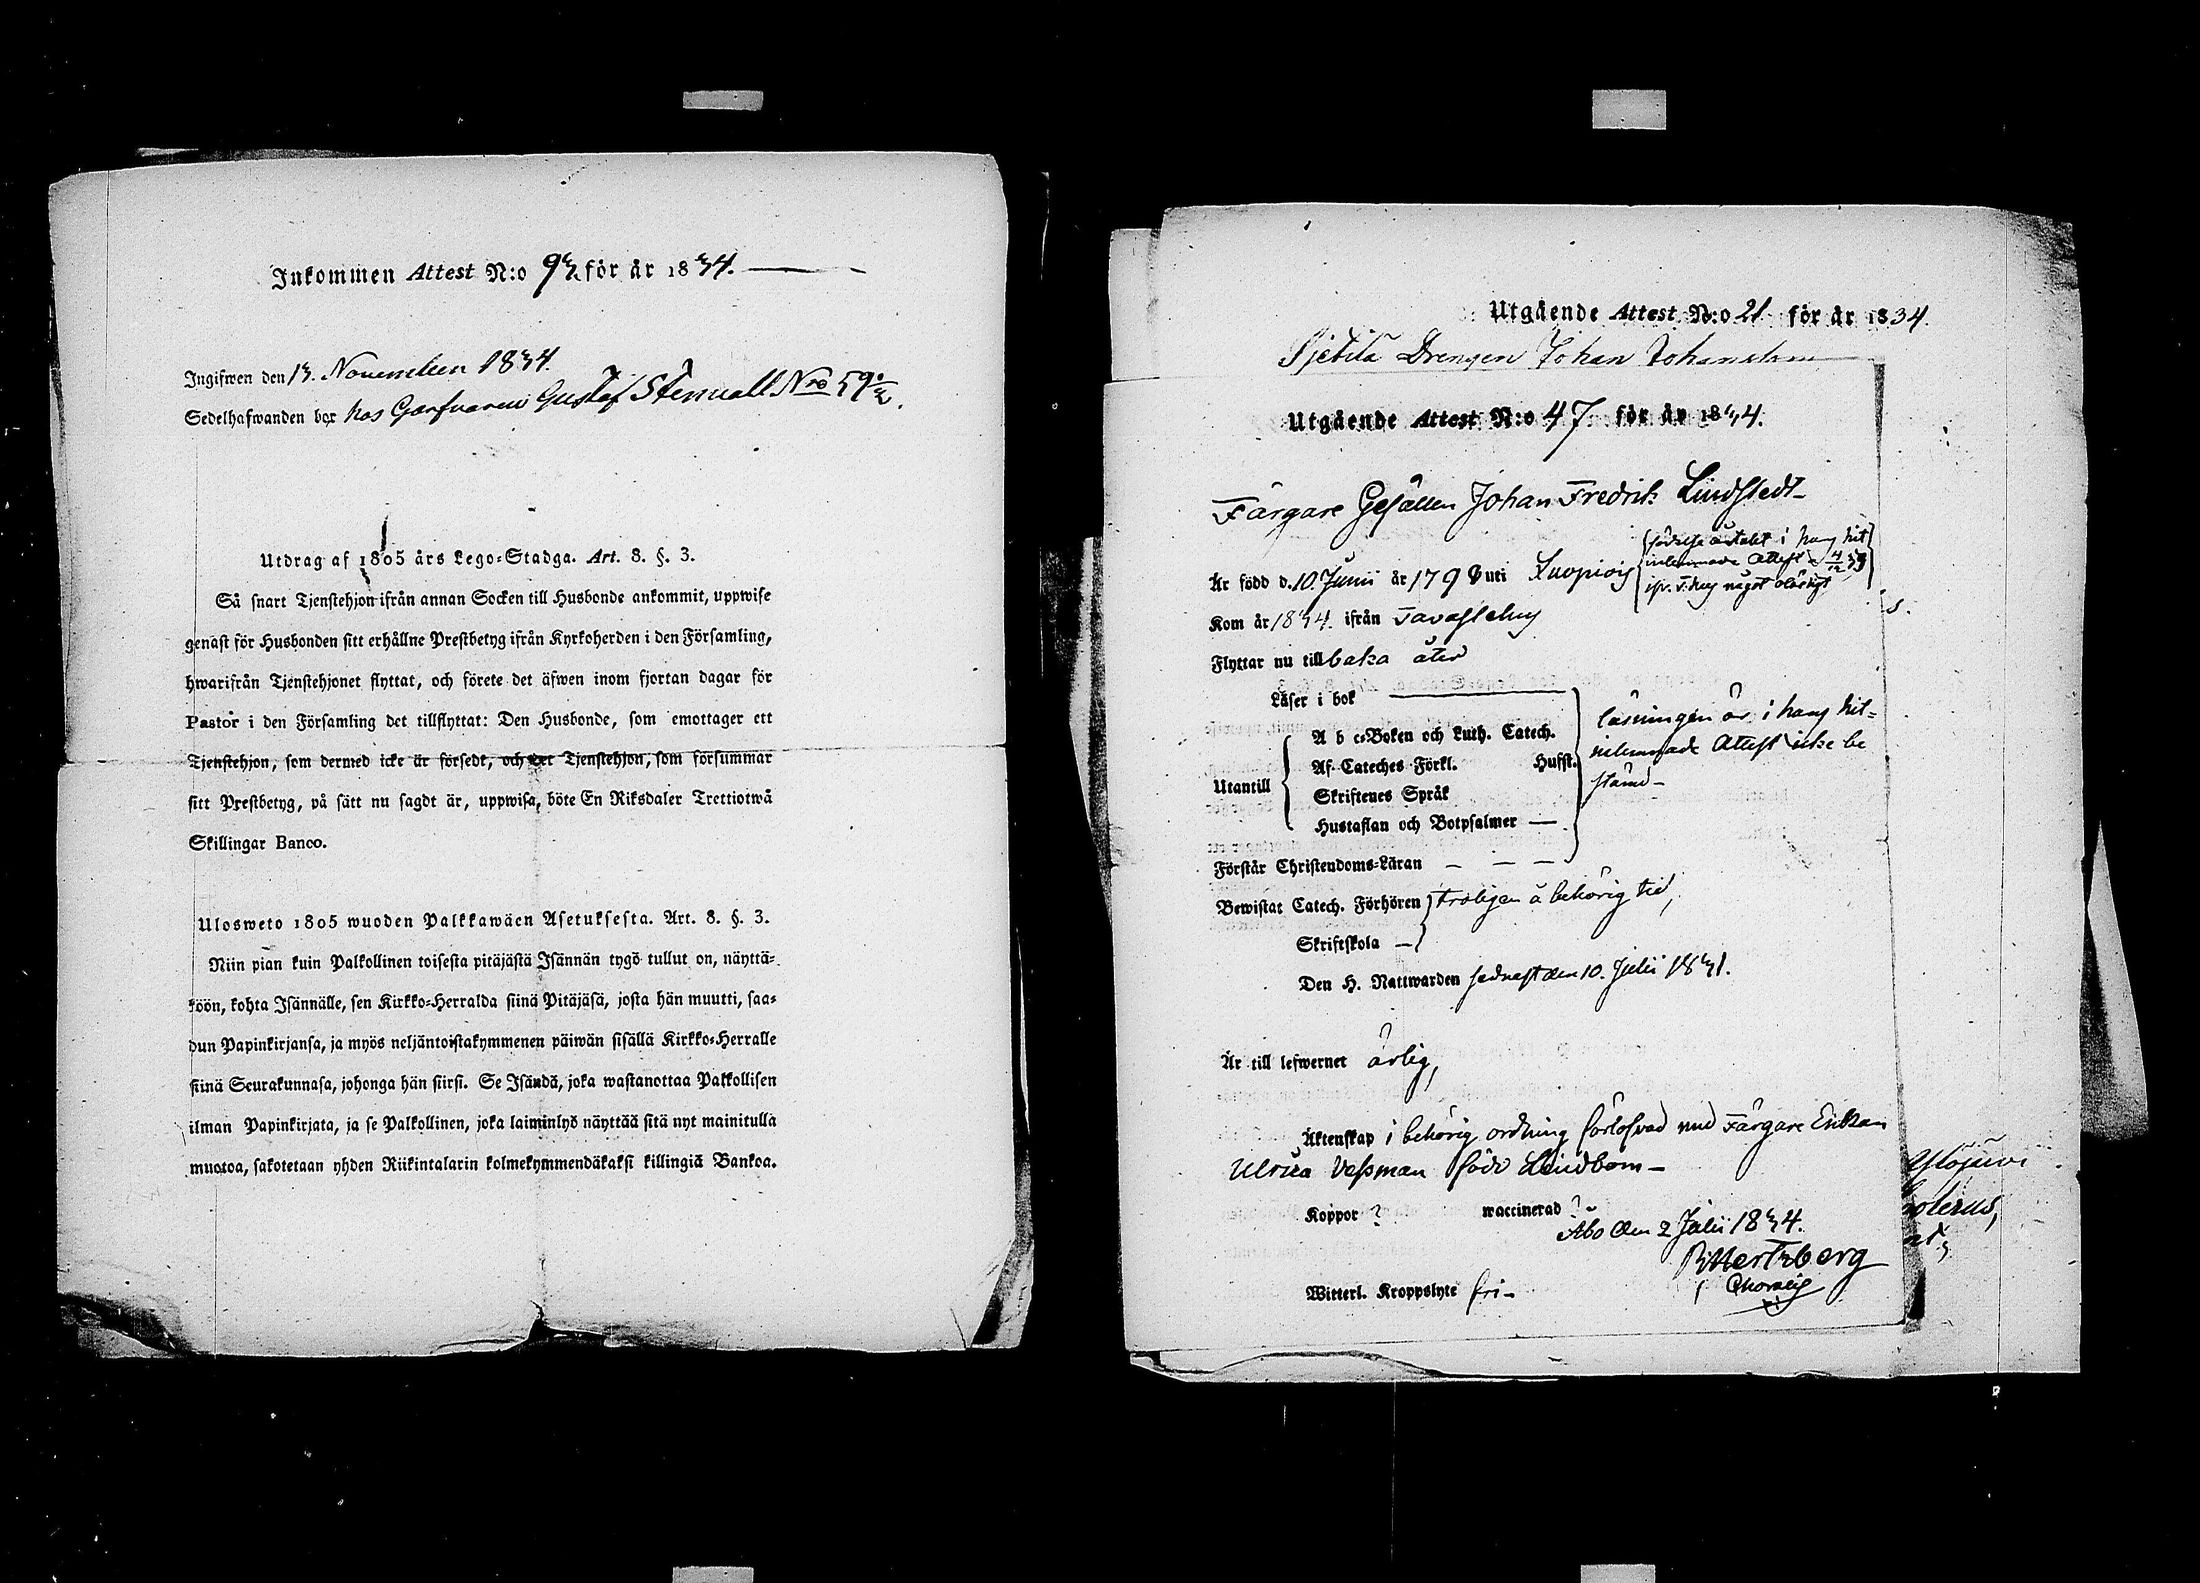 Inkommen Attest N:o 93 för år 1834.
Ingifwen den 13. November 1834.
Sedelhafwanden bor hos Garfvaren Gustaf Stenvall Nro 59½.
Utdrag af 1805 års Lego-Stadga. Art. 8. §. 3.
Så snart Tjenstehjon ifrån annan Socken till Husbonde ankommit, uppwise
genast för Husbonden sitt erhållne Prestbetyg ifrån Kyrkoherden i den Församling,
hwarifrån Tjenstehjonet flyttat, och förete det äfwen inom fjortan dagar för
Pastor i den Församling det tillflyttat: Den Husbonde, som emottager ett
Tjenstehjon, som dermed icke är försedt, och det Tjenstehjon, som försummar
sitt Prestbetyg, på sätt nu sagdt är, uppwisa, böte En Riksdaler Trettiotwå
Skillingar Banco.
Ulosweto 1805 wuoden Palkkawäen Asetuksesta. Art. 8. §. 3.
Niin pian kuin Palkollinen toisesta pitäjästä Isännän tygö tullut on, näyttä-
köön, kohta Isännälle, sen Kirkko-Herralda siinä Pitäjäsä, josta hän muutti, saa-
dun Papinkirjansa, ja myös neljäntoistakymmenen päiwän sisällä Kirkko-Herralle
siinä Seurakunnasa, johonga hän siirsi. Se Isändä, joka wastanottaa Palkollisen
ilman Papinkirjata, ja se Palkollinen, joka laiminlyö näyttää sitä nyt mainitulla
muotoa, sakotetaan yhden Riikintalarin kolmekymmendäkaksi killingiä Bankoa.
Utgående Attest N:o 21 för år 1834.
Drengen Johan Johansson
Utgående Attest N:o 47 för år 1834.
Färgare Gesällen Johan Fredrik Lindstedt
Är född d. 10. Junii år 179 uti Kuopio
födelse i hans hit
Attest
något oläsligt
Kom år 1834. ifrån Tavastehus
Flyttar nu tillbaka åter
Läser i bok
Utantill
A b c-Boken och Luth. Catech.
Af Cateches Förkl. Husst.
Skriftenes Språk
Hustaflan och Botpsalmer
läsningen är i hans hit-
inlemnade Attest icke be
stämd
Förstår Christendoms-Läran
Bewistat Catech. Förhören
Skriftskola
troligen å behörig tid,
Den H. Nattwarden sednast den 10. Julii 1831.
Är till lefwernet ärlig,
Äktenskap i behörig ordning förlofvad med Färgare Enkan
Ulrica Vessman född Lindbom
Koppor ? waccinerad ?
Åbo den 2 Julii 1834.
Hertzberg
Witterl. Kroppslyte fri